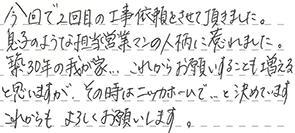 今回で2回目の工事依頼とさせて頂きました。
息子のような担当営業マンの人柄に惹れました。
築30年の我が家… これからお願いすることも増える
と思いますが、その時はニッカホームで…と決めています
これからも よろしくお願いします。